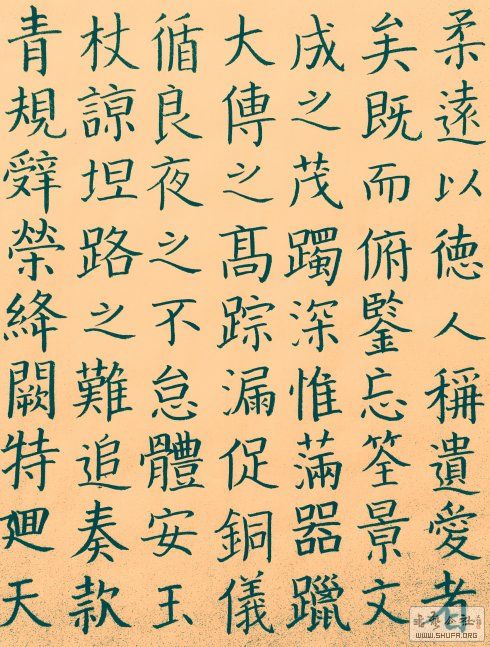 柔遠以徳人稱遺愛者
矣既而俯鑒忘筌景文
成之茂躅深惟滿器躐
大傅之髙踪漏促銅儀
循良夜之不怠體安玉
杖諒坦路之難追奏款
青規辤榮絳闕特迴天
WWW.SHUFA.ORG